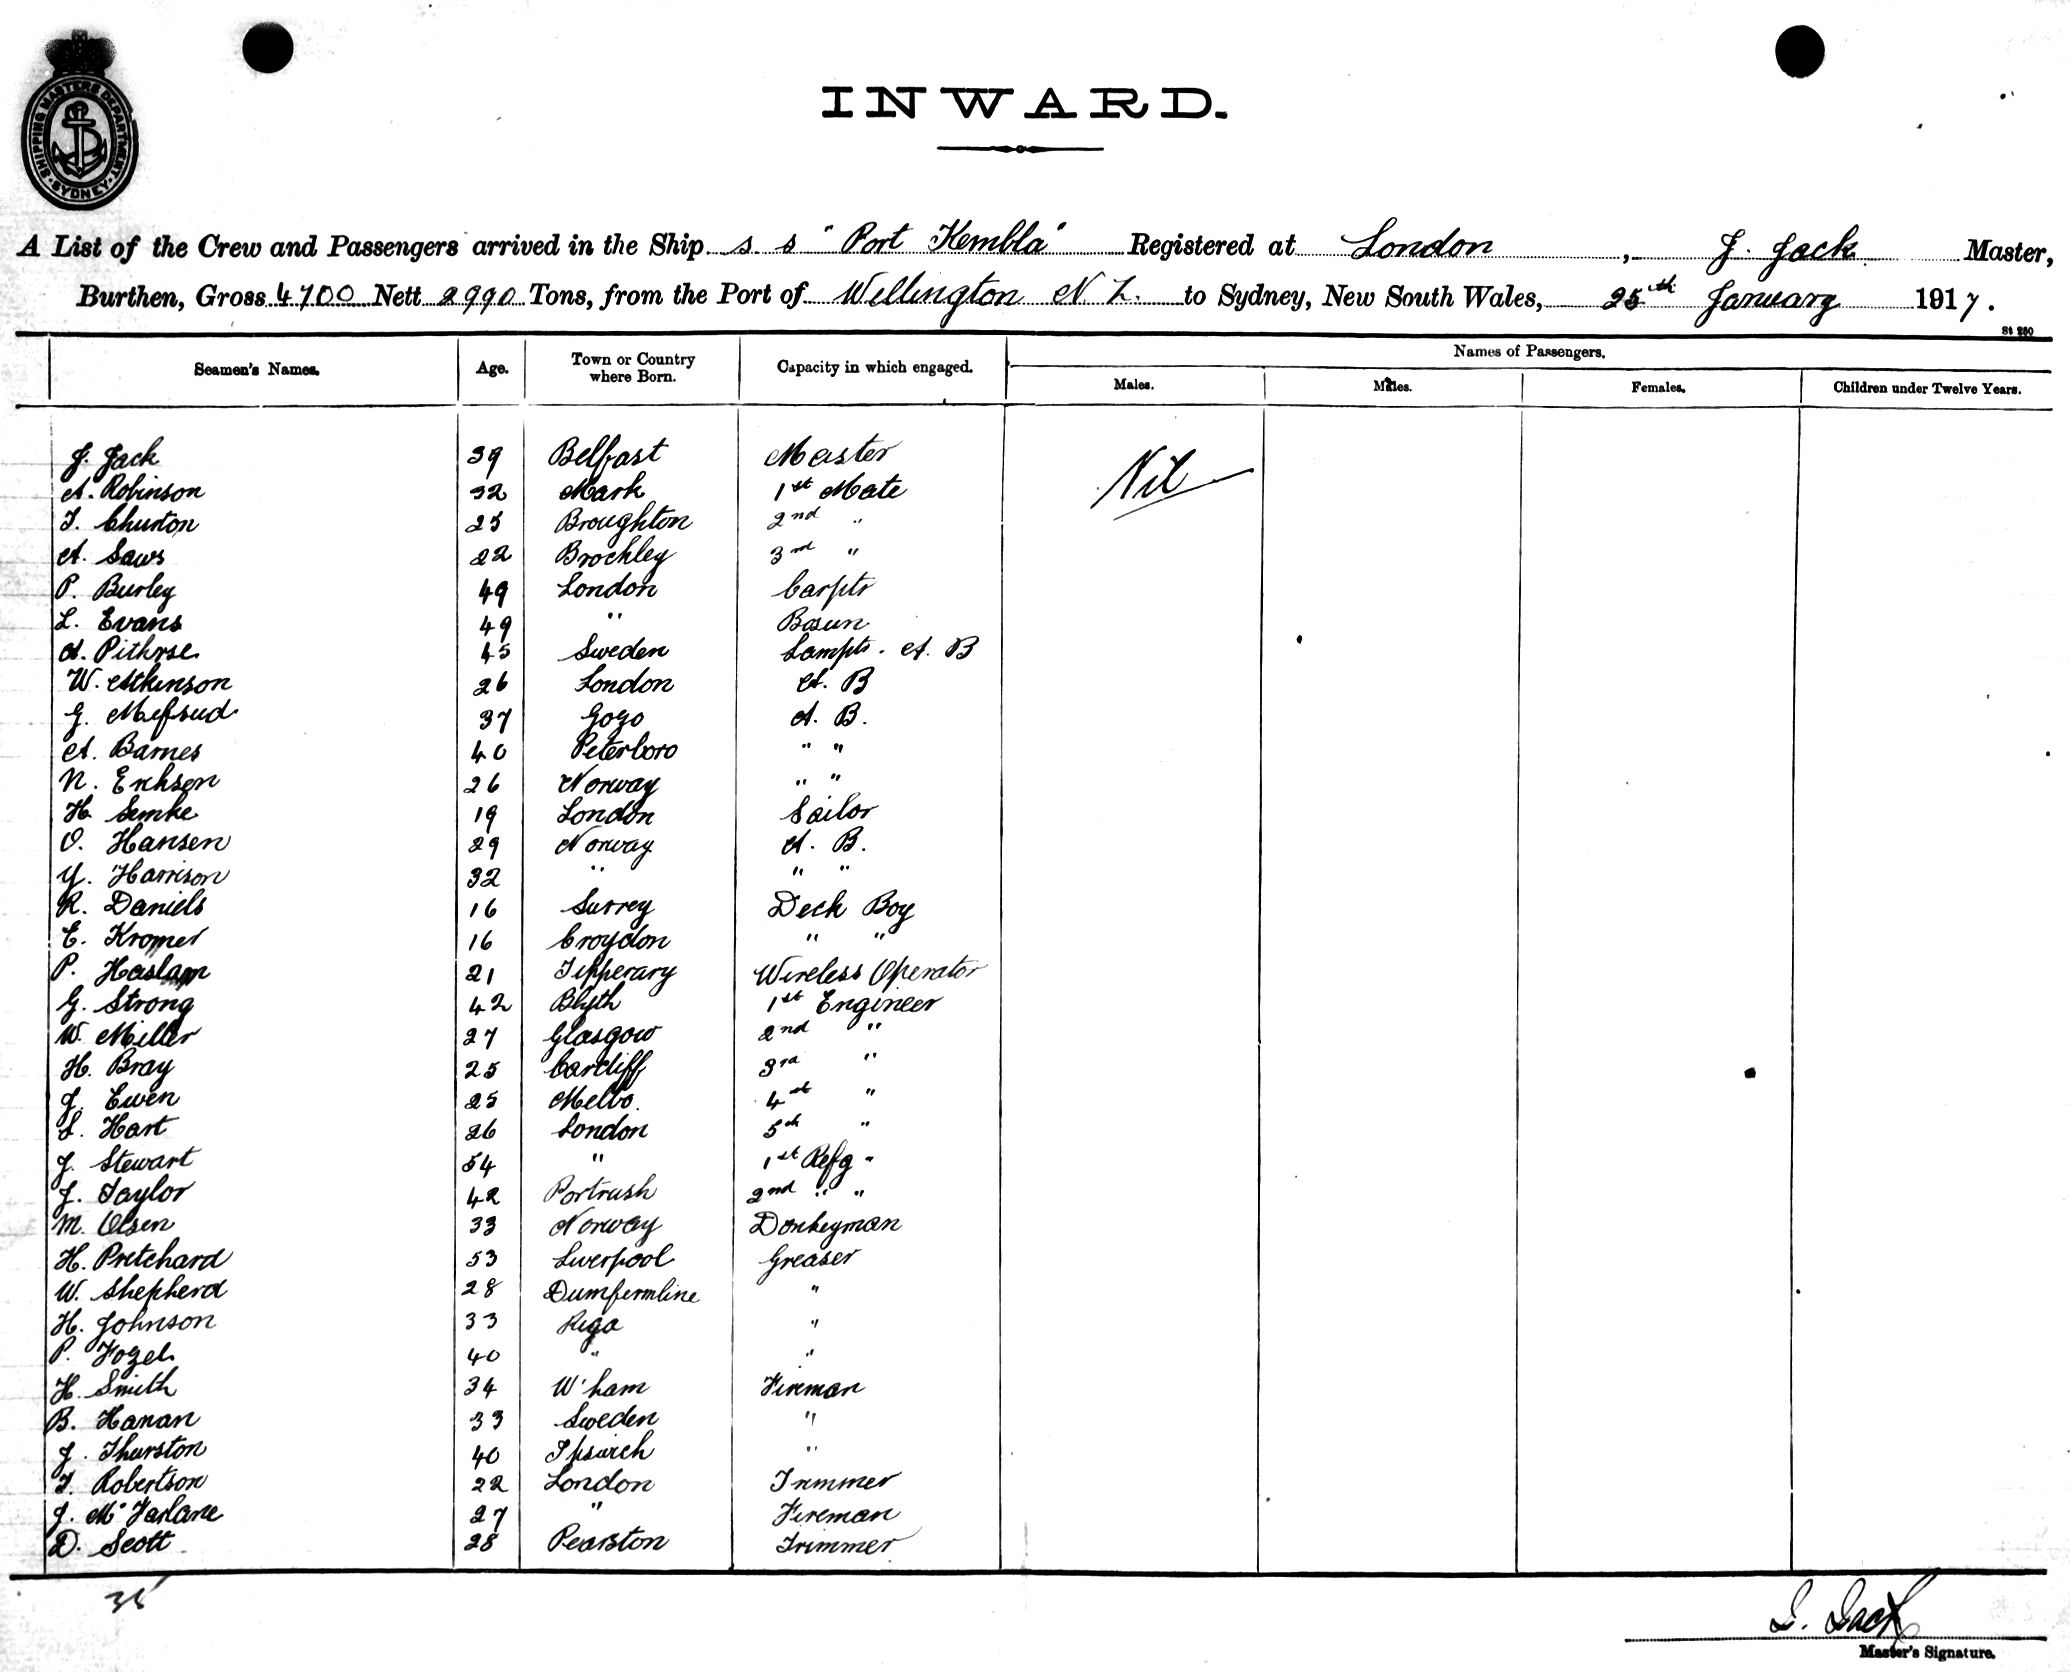 SHIPPING MASTERS DEPARTMENT · SYDNEY ·
INWARD.
A List of the Crew and Passengers arrived in the Ship s s "Port Kembla" Registered at London, J. Jack Master,
Burthen, Gross 4700 Nett 2990 Tons, from the Port of Wellington N Z. to Sydney, New South Wales, 25th January 1917.
St 280
Seamen's Names. Age. Town or Country where Born. Capacity in which engaged. Names of Passengers.
Males. Males. Females. Children under Twelve Years.
J. Jack 39 Belfast Master Nil
A. Robinson 32 Mark 1st Mate
T. Churton 25 Broughton 2nd "
A. Saws 22 Brockley 3rd "
P. Burley 49 London Carptr
L. Evans 49 " Bosun
A. Pithrse 45 Sweden Lamptr. A. B
W. Atkinson 26 London A. B
G. Mifsud 37 Gozo A. B.
A. Barnes 40 Peterboro " "
N. Erikson 26 Norway " "
H. Semke 19 London Sailor
O. Hansen 29 Norway A. B.
Y. Harrison 32 " " "
R. Daniels 16 Surrey Deck Boy
E. Kromer 16 Croydon " "
P. Haslam 21 Tipperary Wireless Operator
G. Strong 42 Blyth 1st Engineer
W. Miller 27 Glasgow 2nd "
H. Bray 25 Cardiff 3rd "
J. Ewen 25 Melbo. 4th "
L. Hart 26 London 5th "
J. Stewart 54 " 1st Refg "
J. Taylor 42 Portrush 2nd " "
M. Olsen 33 Norway Donkeyman
H. Pritchard 53 Liverpool Greaser
W. Shepherd 28 Dumfermline "
H. Johnson 33 Riga "
P. Fogel 40 " "
H. Smith 34 W'ham Fireman
B. Hanan 33 Sweden "
J. Thurston 40 Ipswich "
T. Robertson 22 London Trimmer
J. McFarlane 27 " Fireman
D. Scott 28 Pearston Trimmer
35
J. Jack
Master's Signature.